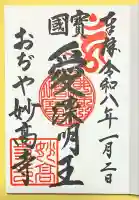 吉祥 令和八年一月二日
國寶
愛染明王
おぢや妙高寺
妙高